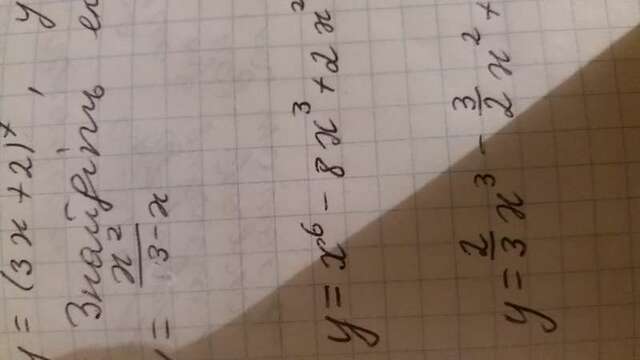 y = (3x + 2)⁷, y
Знайдіть
y = x²/(3 - x)
y = x⁶ - 8x³ + 2x²
y = 2/3 x³ - 3/2 x² +